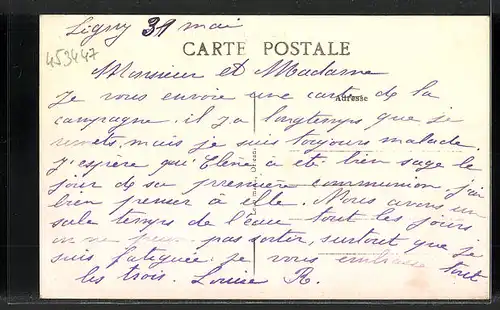 Ligny 31 mai
453447
CARTE POSTALE
Monsieur et Madame
Adresse
Je vous envoie une carte de la
campagne. il y a longtemps que je
remets, mais je suis toujours malade.
J'espère que Elène a été bien sage le
jour de sa première communion, j'ai
bien penser a elle. Nous avons un
sale temps de l'eau tout les jours
on ne peux pas sortir, surtout que je
suis fatiguée. je vous embrasse tout
les trois. Louise R.